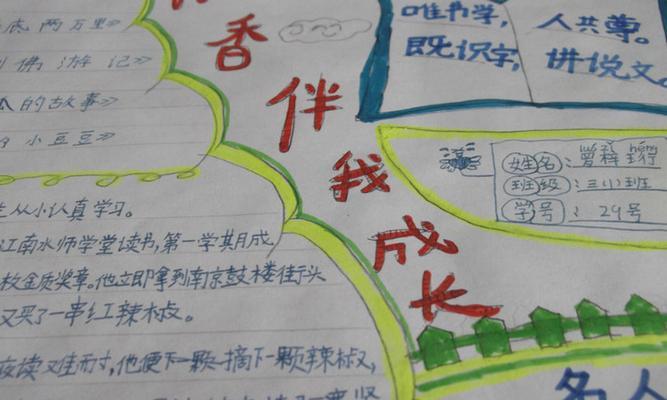 底两万里》
佛游记》
的故事》
小豆豆》
香伴我成长
唯书学，人共尊。
既识字，讲说文。
姓名：罗梓珩
班级：三(1)班
学号：29号
从小认真学习。
江南水师学堂读书，第一学期成
枚金质奖章。他立即拿到南京鼓楼街头
又买了一串红辣椒。
夜读难耐时，他便下一颗摘下一颗辣椒，
名人